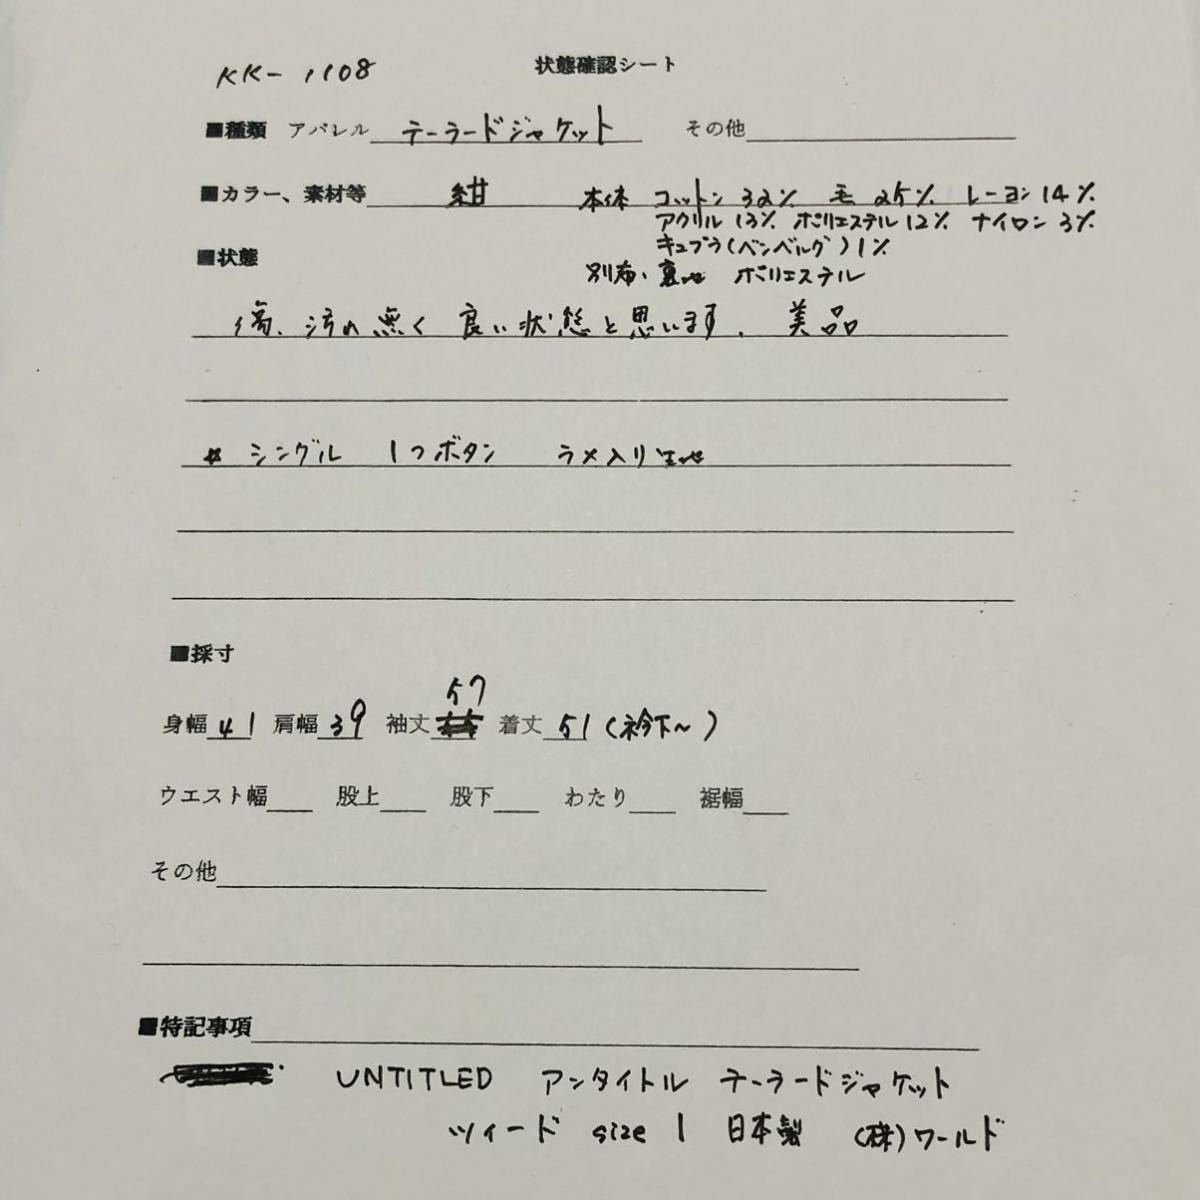 KK-1108
状態確認シート
■種類 アパレル テーラードジャケット その他
■カラー、素材等 紺 本体 コットン 32% 毛 25% レーヨン 14%
アクリル 13% ポリエステル 12% ナイロン 3%
キュプラ(ベンベルグ) 1%
■状態
別布・裏地 ポリエステル
傷、汚れ無く 良い状態と思います、 美品
☆ シングル 1つボタン ラメ入り生地
■採寸
57
身幅 41 肩幅 39 袖丈 着丈 51 (衿下~)
ウエスト幅 股上 股下 わたり 裾幅
その他
■特記事項
UNTITLED アンタイトル テーラードジャケット
ツイード size 1 日本製 (株)ワールド